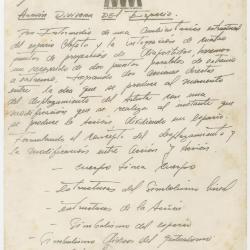 Acción Divisora DEL Espacio.
Por Intermedio de una Cambiante acción estructural
del espacio Objeto y la integración de
puntos de proyección de Dispositivos haremos
un recorrido de dos puntos paralelos de extremo
a extremo, trazando dos lineas directas
entre las dos que se produce al momento
del desplazamiento del Artista son una
modificación que se realiza al instante que
se produce la acción dividiendo un espacio.
Formulando el concepto del desplazamiento y
la modificación entre acción y división
- cuerpo linea Cuerpo
- estructuras del Simbolismo lineal
- estructura de la Acción
- Simbolismo del espacio
- Simbolismo del